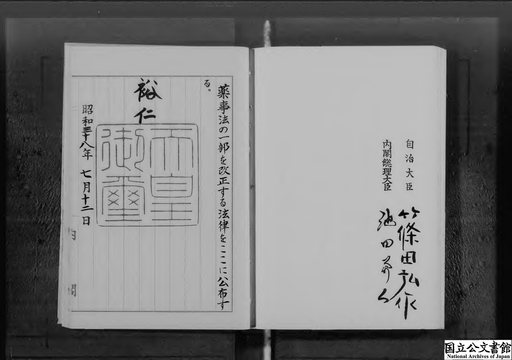 薬事法の一部を改正する法律をここに公布す
る。
裕仁
天皇
御璽
昭和三十八年 七月十二日
自治大臣 篠田弘作
内閣総理大臣 池田勇人
国立公文書館
National Archives of Japan